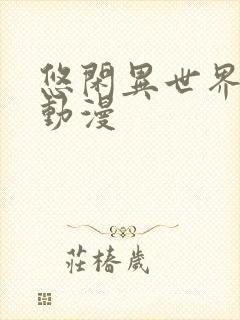 悠閑異世界
動漫
莊椿歲